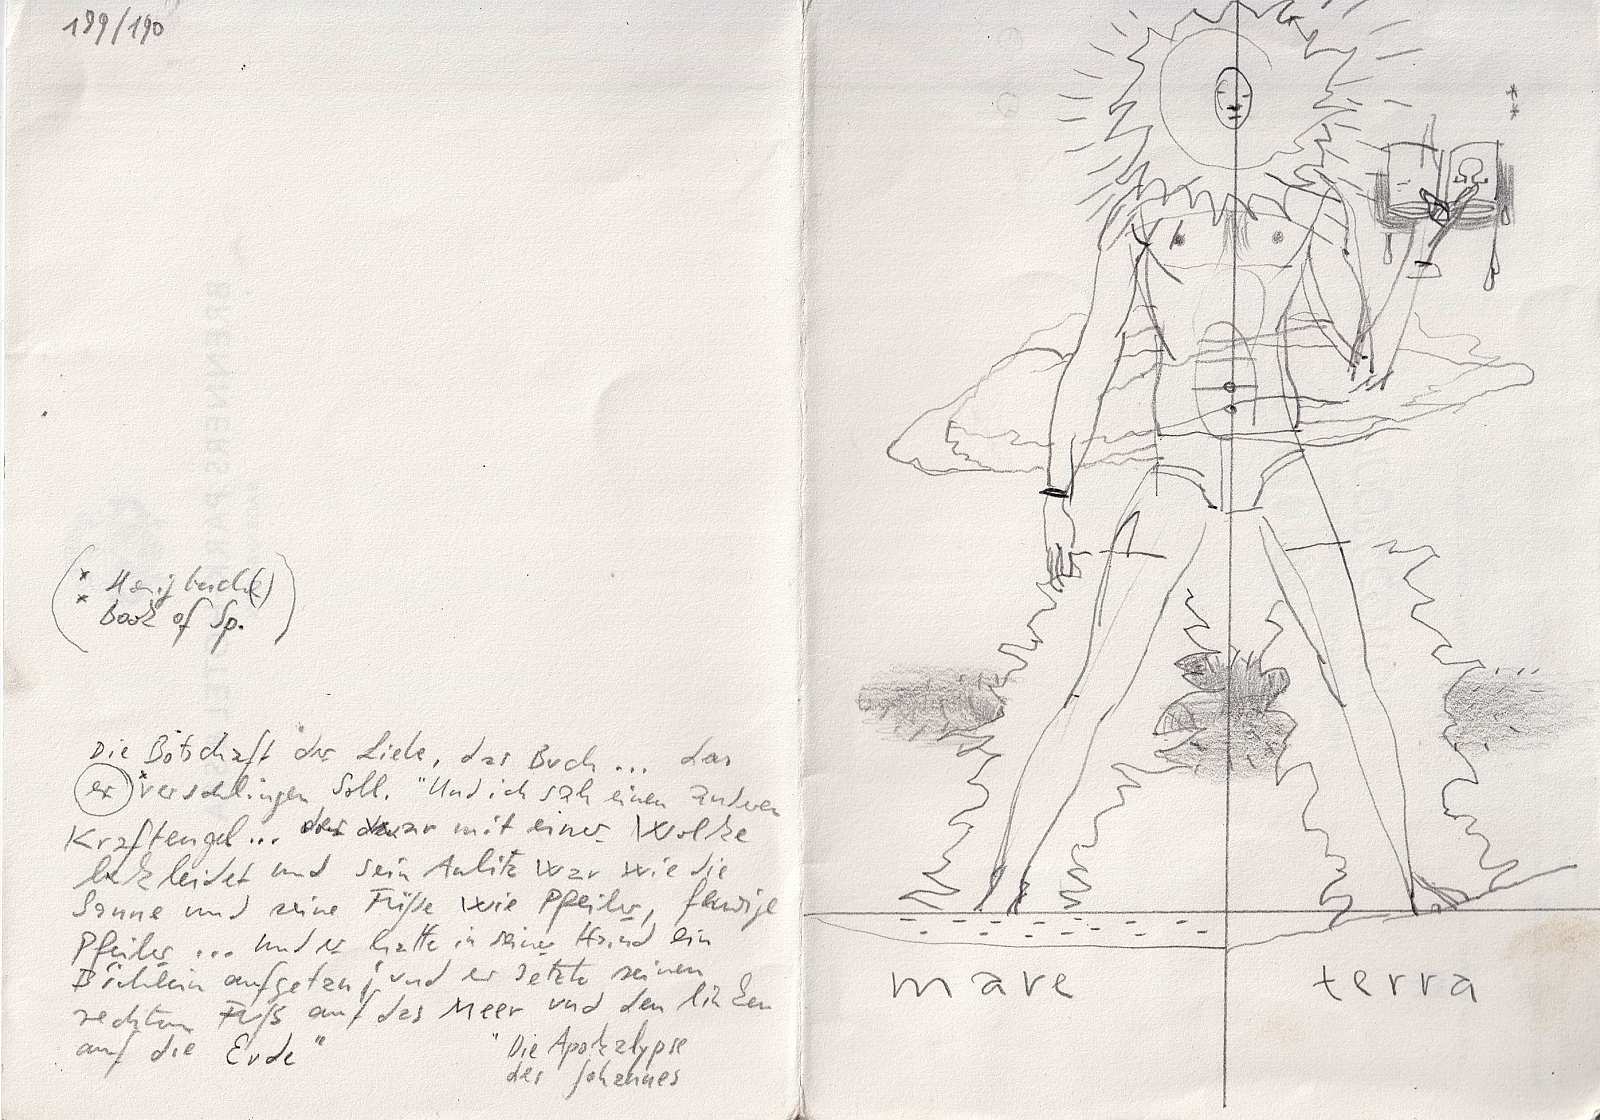 189/190
* Honigbuch(e)
* Book of Sp.
Die Botschaft der Liebe, das Buch ... das
er verschlingen soll. "Und ich sah einen anderen
Kraftengel ... der war mit einer Wolke
bekleidet und sein Antlitz war wie die
Sonne und seine Füße wie Pfeiler, feurige
Pfeiler ... und er hatte in seiner Hand ein
Büchlein aufgetan; und er setzte seinen
rechten Fuß auf das Meer und den linken
auf die Erde"
"Die Apokalypse
des Johannes
mare terra